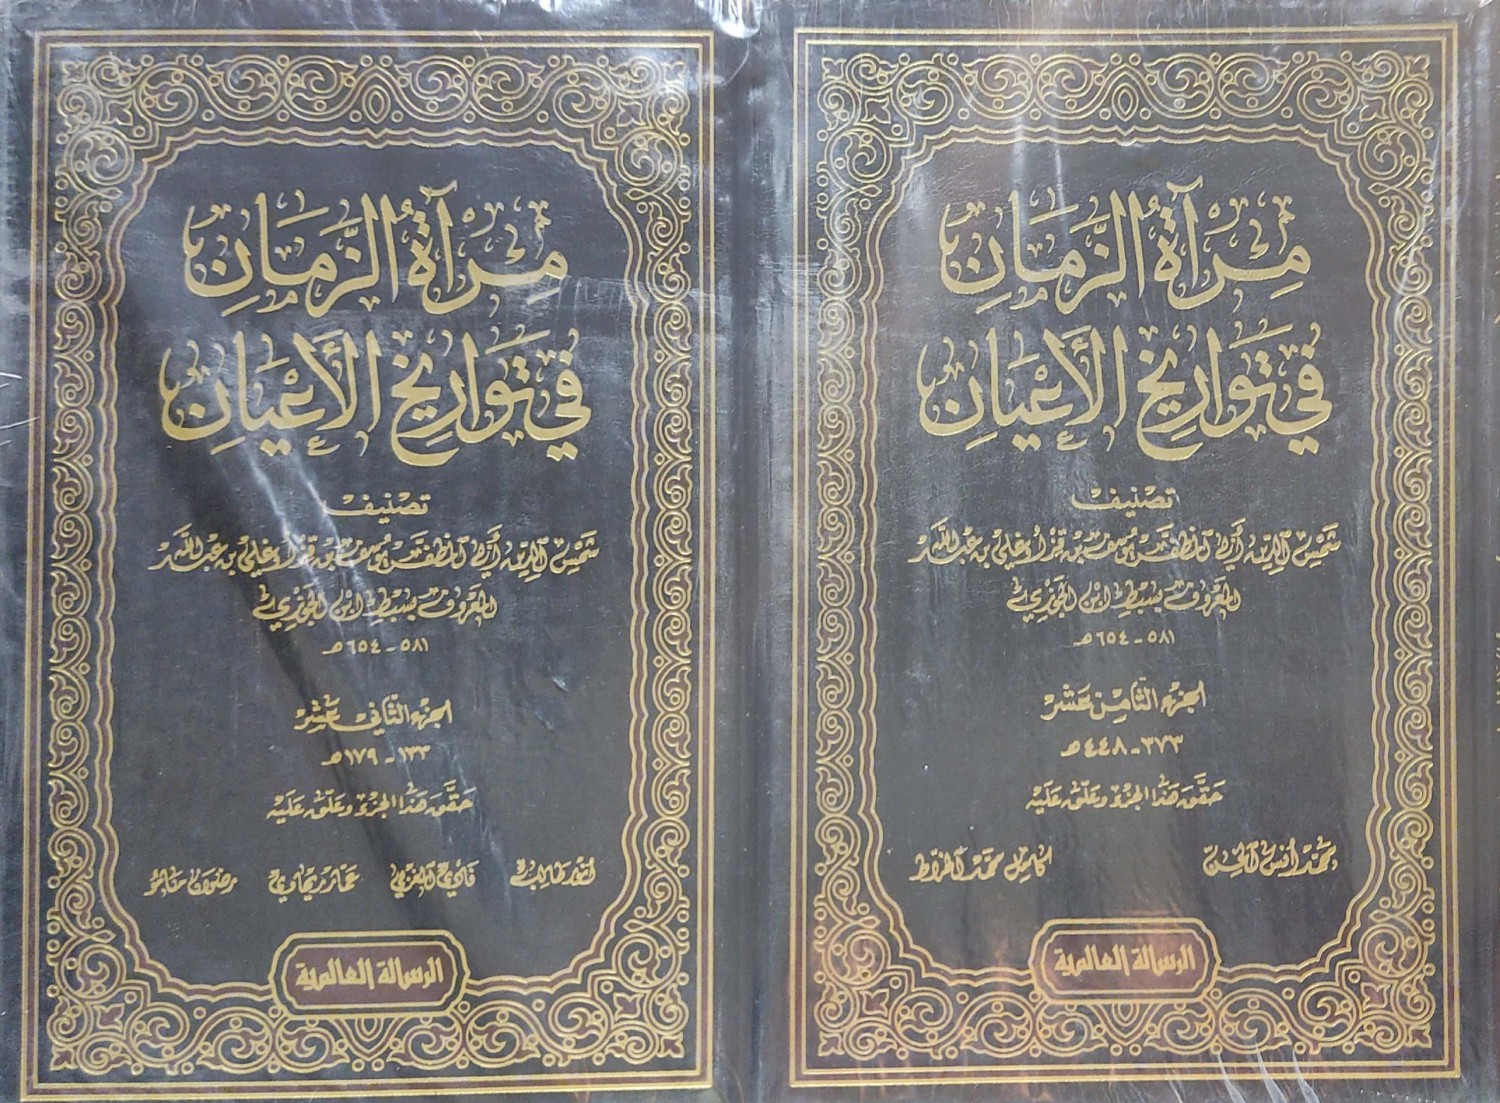 مِرْآةُ الزَّمَانِ
في تَوَارِيخِ الأَعْيَانِ
تصنيف
شمس الدين أبي المظفر يوسف بن قزأوغلي بن عبد الله
المعروف بسبط ابن الجوزي
٥٨١ - ٦٥٤ هـ
الجزء الثامن عشر
٣٧٣ - ٤٤٨ هـ
حقق هذا الجزء وعلق عليه
محمد أنس الخن
كامل محمد الخراط
الرسالة العالمية
مِرْآةُ الزَّمَانِ
في تَوَارِيخِ الأَعْيَانِ
تصنيف
شمس الدين أبي المظفر يوسف بن قزأوغلي بن عبد الله
المعروف بسبط ابن الجوزي
٥٨١ - ٦٥٤ هـ
الجزء الثاني عشر
١٣٣ - ١٧٩ هـ
حقق هذا الجزء وعلق عليه
أنور طالب
فادي المغربي
عمار ريحاوي
رضوان مامو
الرسالة العالمية